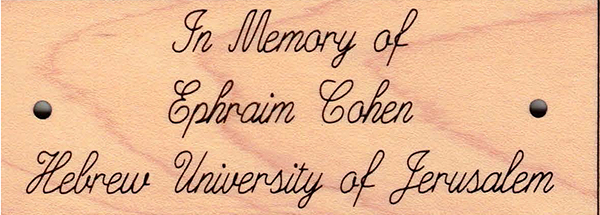 In Memory of
Ephraim Cohen
Hebrew University of Jerusalem